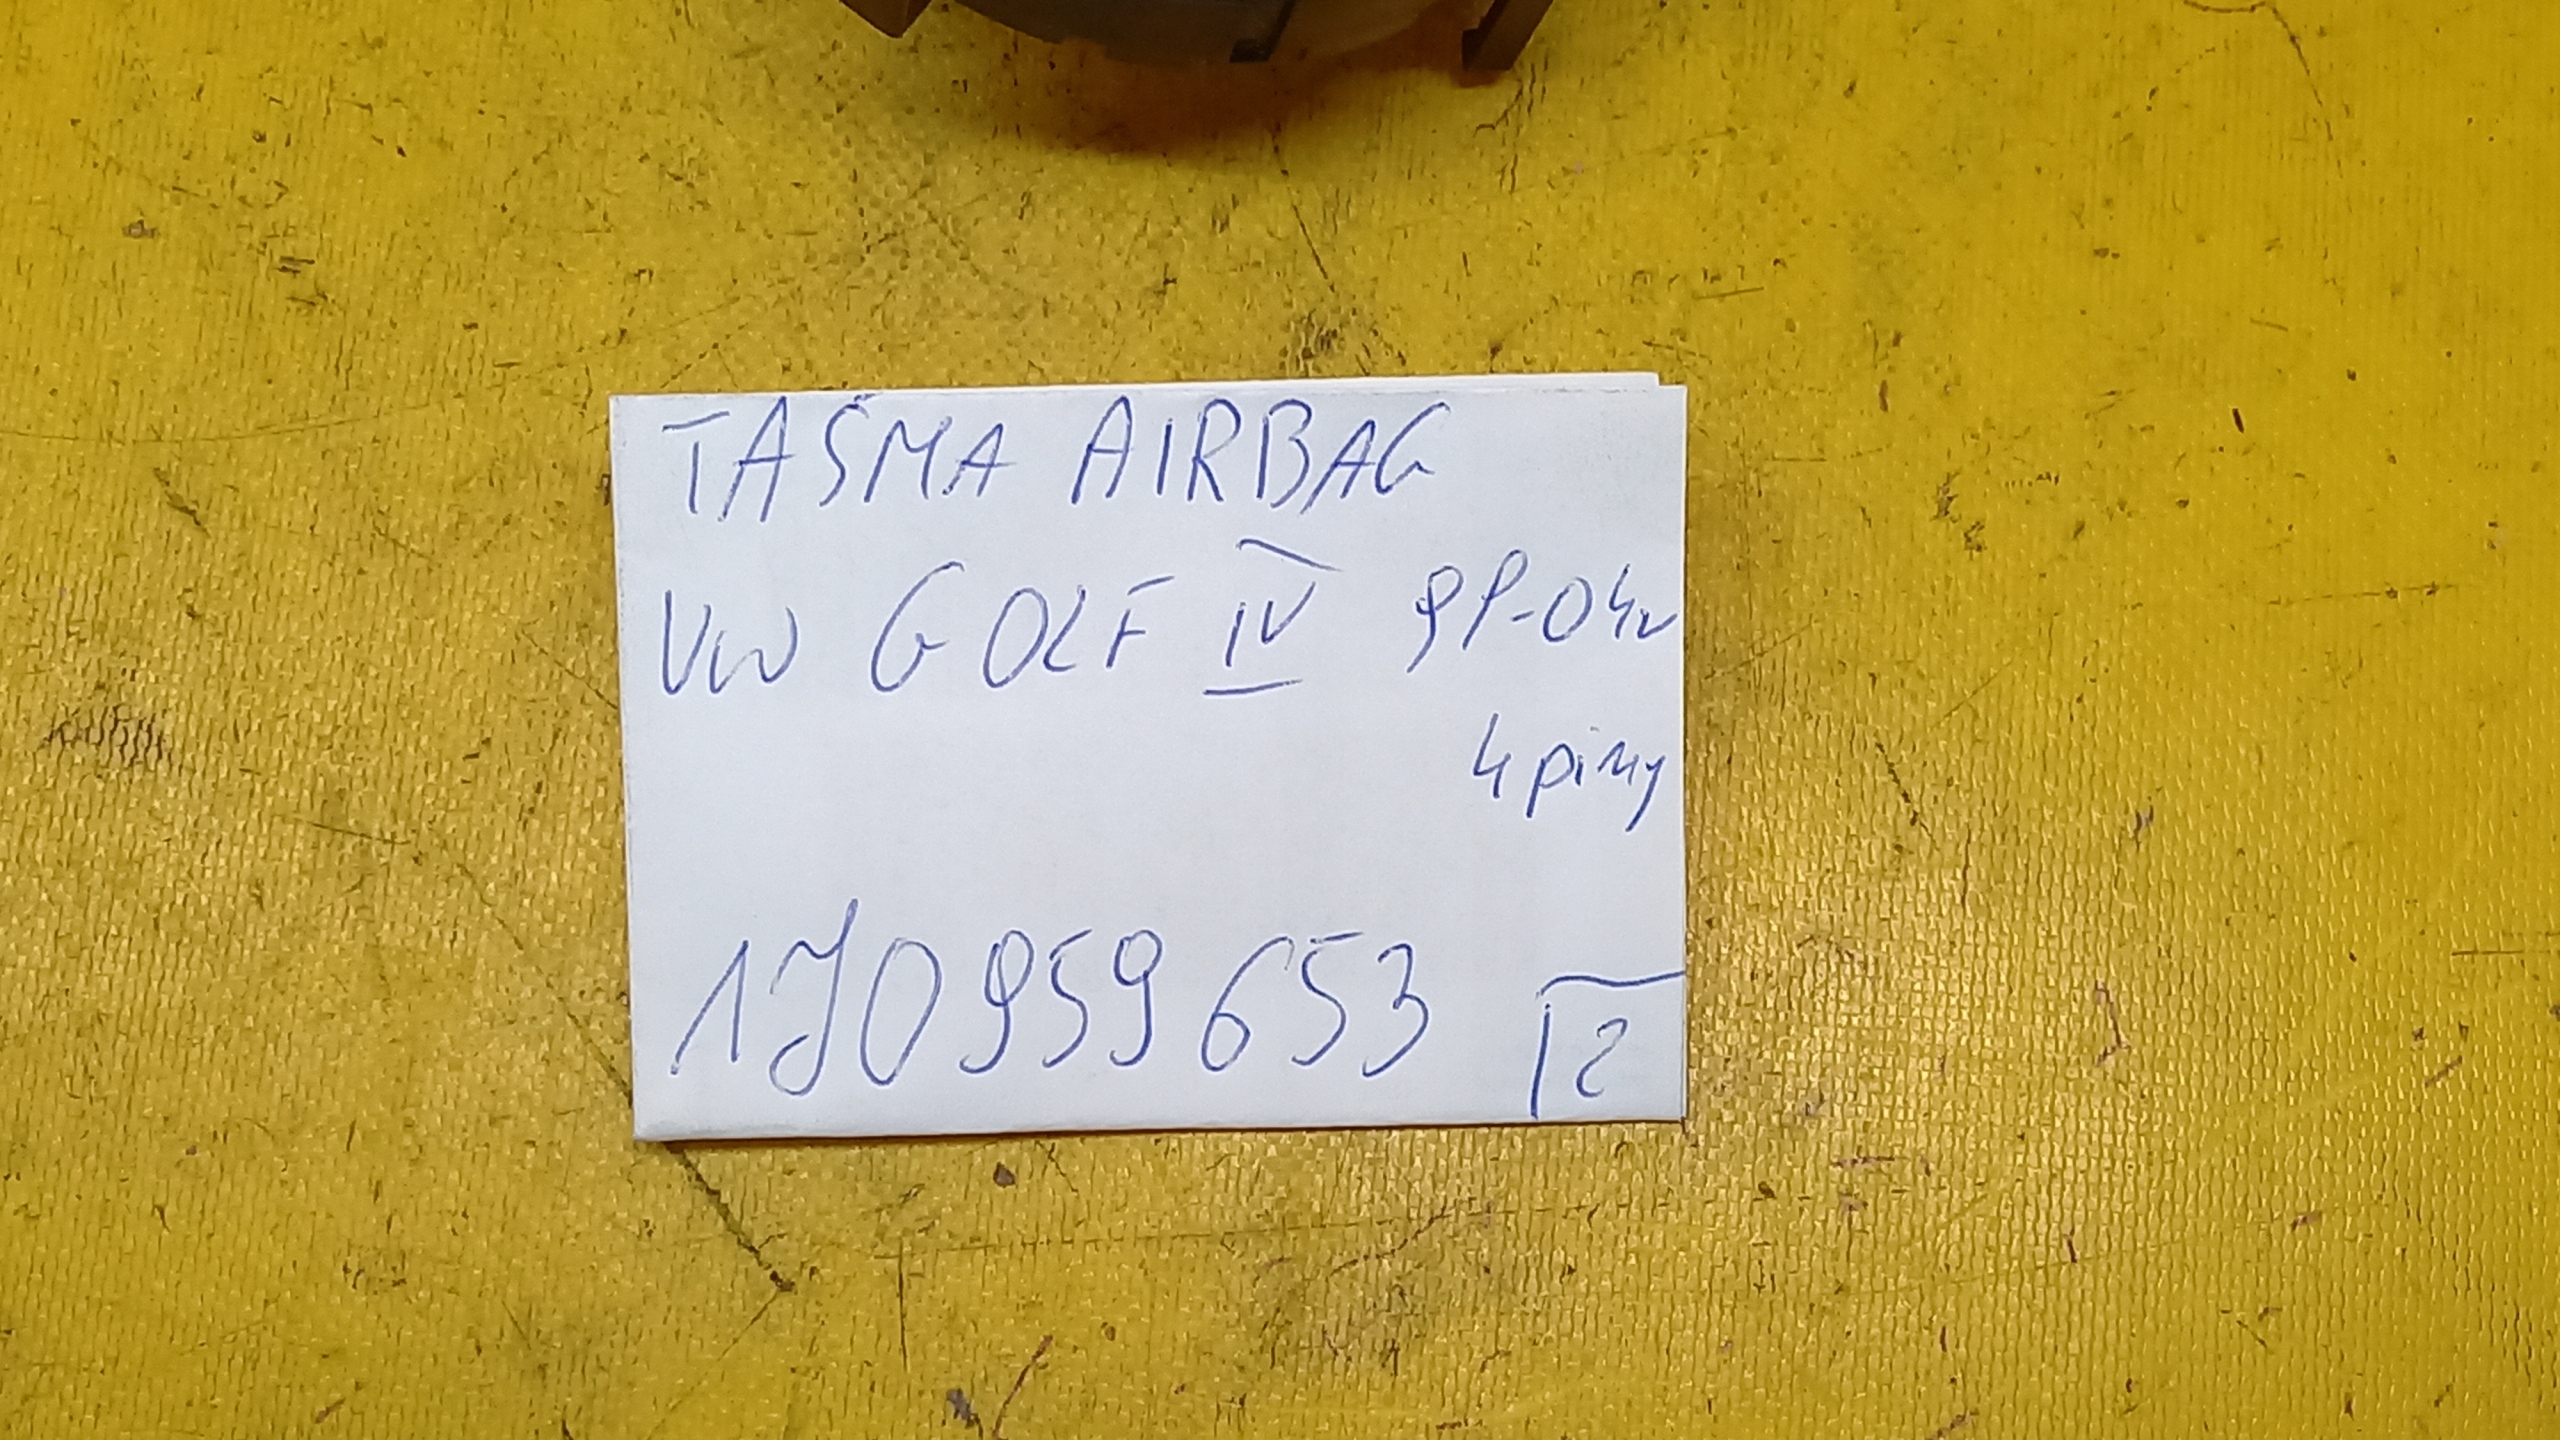 TAŚMA AIRBAG
VW GOLF IV 98-04r
4 piny
1J0959653 12